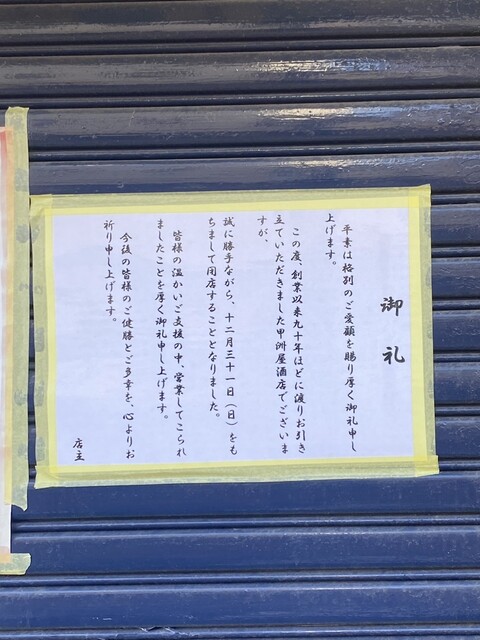 御礼
平素は格別のご愛顧を賜り厚く御礼申し
上げます。
この度、創業以来九十年ほどに渡りお引き
立ていただきました甲洲屋酒店でございま
すが、
誠に勝手ながら、十二月三十一日（日）をも
ちまして閉店することとなりました。
皆様の温かいご支援の中、営業してこられ
ましたことを厚く御礼申し上げます。
今後の皆様のご健勝とご多幸を、心よりお
祈り申し上げます。
店主